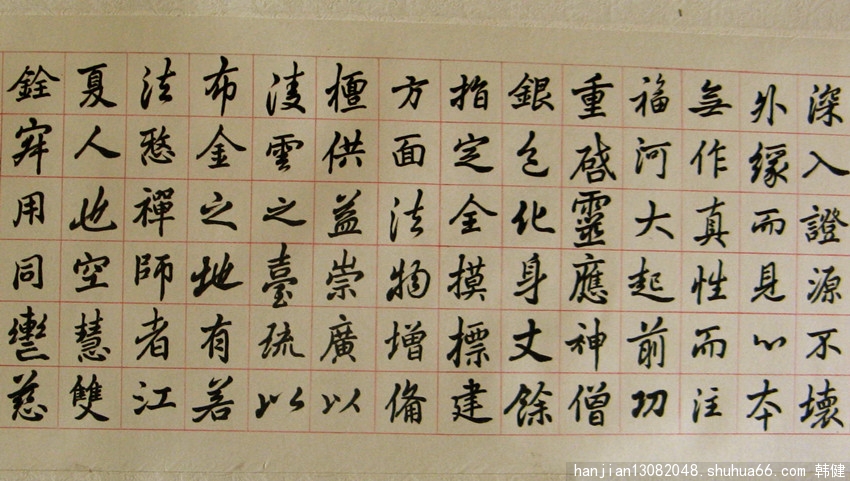 深入證源不壞
外緣而見心本
無作真性而注
福河大起前功
重啓靈應神僧
銀色化身丈餘
指定全摸標建
方面法物增備
檀供益崇廣以
淩雲之臺疏以
布金之地有若
法愁禪師者江
夏人也空慧雙
銓寂用同轡慈
hanjian13082048.shuhua66.com 韩健